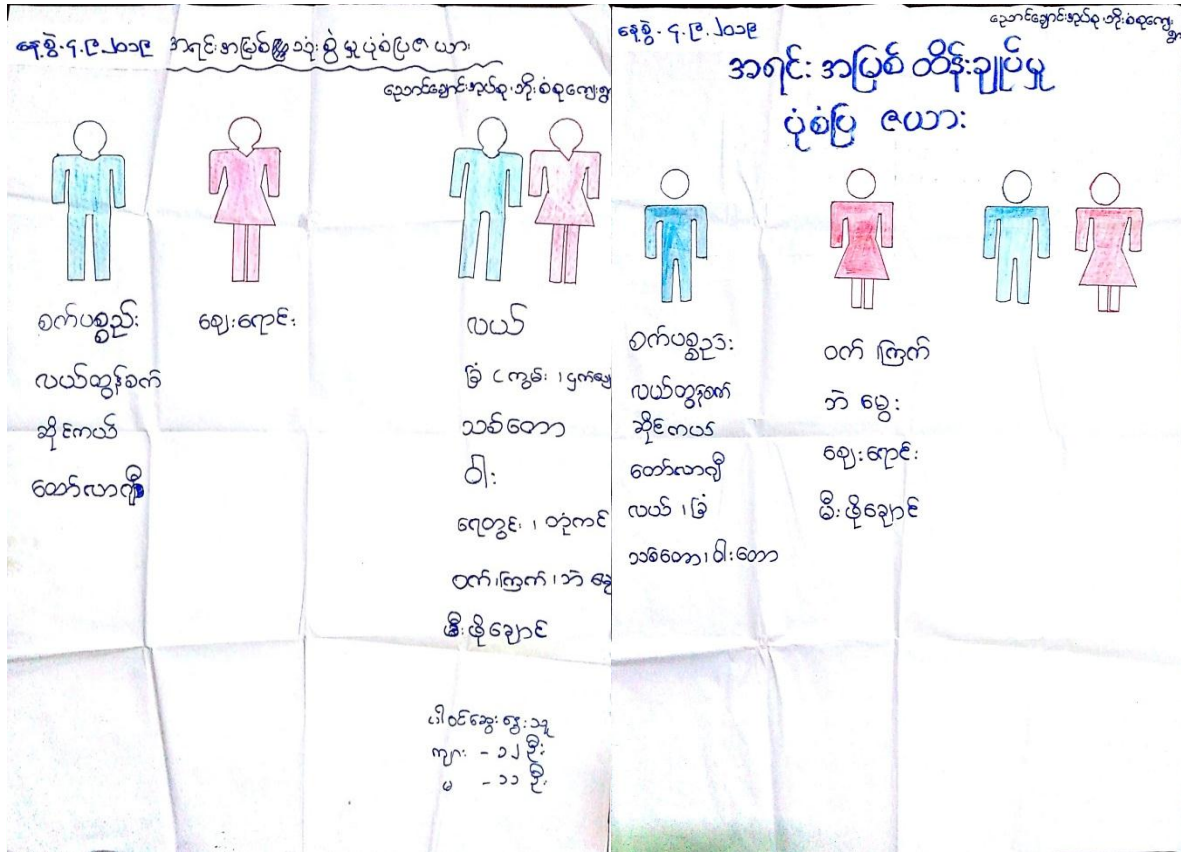 နေ့စွဲ. ၄. ၉. ၂၀၁၉ အရင်းအမြစ် သုံးစွဲမှုပုံစံပြဇယား
ညောင်ချောင်းအုပ်စု၊ဘိုးစံစုကျေးရွာ
စက်ပစ္စည်း
လယ်ထွန်စက်
ဆိုင်ကယ်
ထော်လာဂျီ
ဈေးရောင်း
လယ်
ခြံ
သစ်တော
ဝါး
ရေတွင်း ၊ တုံကင်
ဝက်၊ကြက်၊ဘဲ မွေး
မီးဖိုချောင်
ပါဝင်ဆွေးနွေးသူ
ကျား - ၁၂ ဦး
မ - ၁၁ ဦး
နေ့စွဲ. ၄. ၉. ၂၀၁၉
ညောင်ချောင်းအုပ်စု၊ဘိုးစံစုကျေးရွာ
အရင်းအမြစ် ထိန်းချုပ်မှု
ပုံစံပြ ဇယား
လယ်ထွန်စက်
ဆိုင်ကယ်
ထော်လာဂျီ
လယ် ၊ ခြံ
သစ်တော၊ ဝါးတော
ဝက် ကြက်
ဘဲ မွေး
ဈေးရောင်း
မီးဖိုချောင်